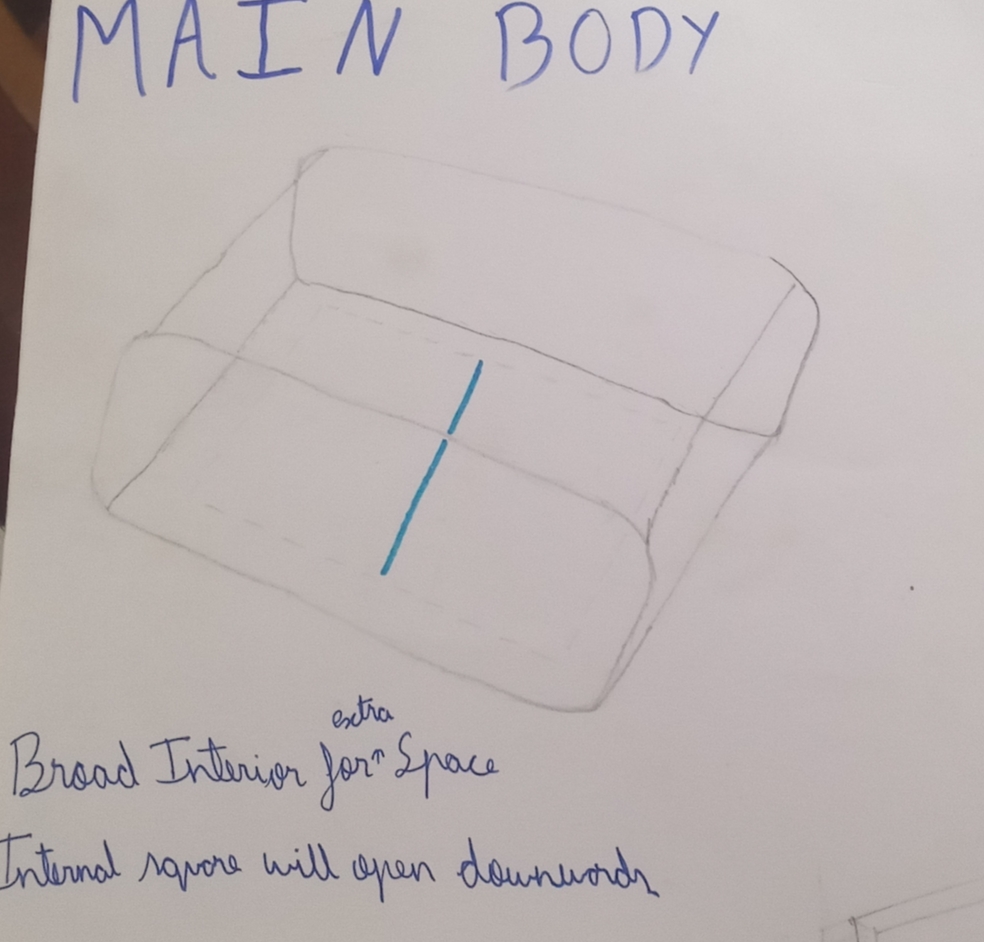 MAIN BODY
Broad Interior for extra Space
Internal square will open downwords